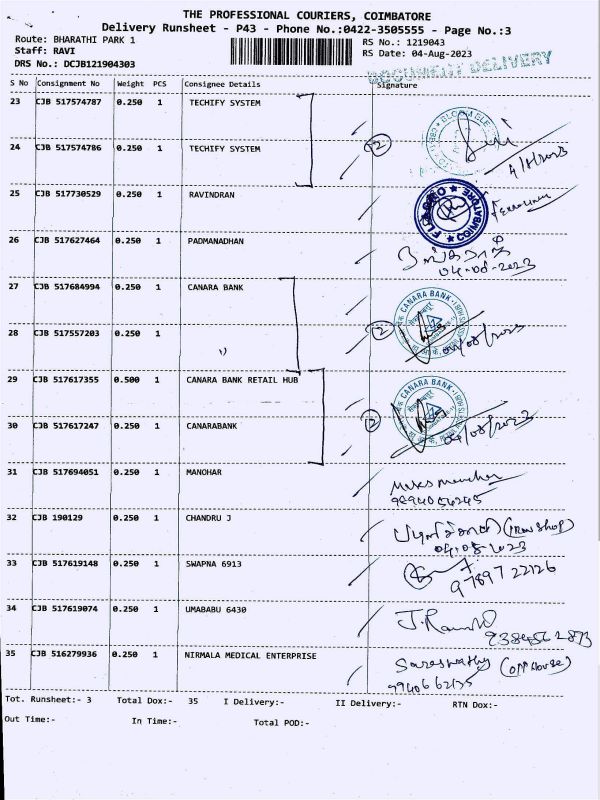 THE PROFESSIONAL COURIERS, COIMBATORE
Delivery Runsheet - P43 - Phone No.:0422-3505555 - Page No.:3
Route: BHARATHI PARK 1
RS No.: 1219043
Staff: RAVI
RS Date: 04-Aug-2023
DRS No.: DCJB121904303
DOCUMENT DELIVERY
S No Consignment No Weight PCS Consignee Details Signature
23 CJB 517574787 0.250 1 TECHIFY SYSTEM
24 CJB 517574786 0.250 1 TECHIFY SYSTEM
2
25 CJB 517730529 0.250 1 RAVINDRAN
COIMBATORE
26 CJB 517627464 0.250 1 PADMANADHAN
04-08-2023
27 CJB 517684994 0.250 1 CANARA BANK
CANARA BANK
28 CJB 517557203 0.250 1 "
2
04/08/2023
29 CJB 517617355 0.500 1 CANARA BANK RETAIL HUB
CANARA BANK
30 CJB 517617247 0.250 1 CANARABANK
2
04/08/2023
31 CJB 517694051 0.250 1 MANOHAR
32 CJB 190129 0.250 1 CHANDRU J
04-08-2023
33 CJB 517619148 0.250 1 SWAPNA 6913
97897 22126
34 CJB 517619074 0.250 1 UMABABU 6430
35 CJB 516279936 0.250 1 NIRMALA MEDICAL ENTERPRISE
Saraswathy (opp House)
Tot. Runsheet:- 3 Total Dox:- 35 I Delivery:- II Delivery:- RTN Dox:-
Out Time:- In Time:- Total POD:-